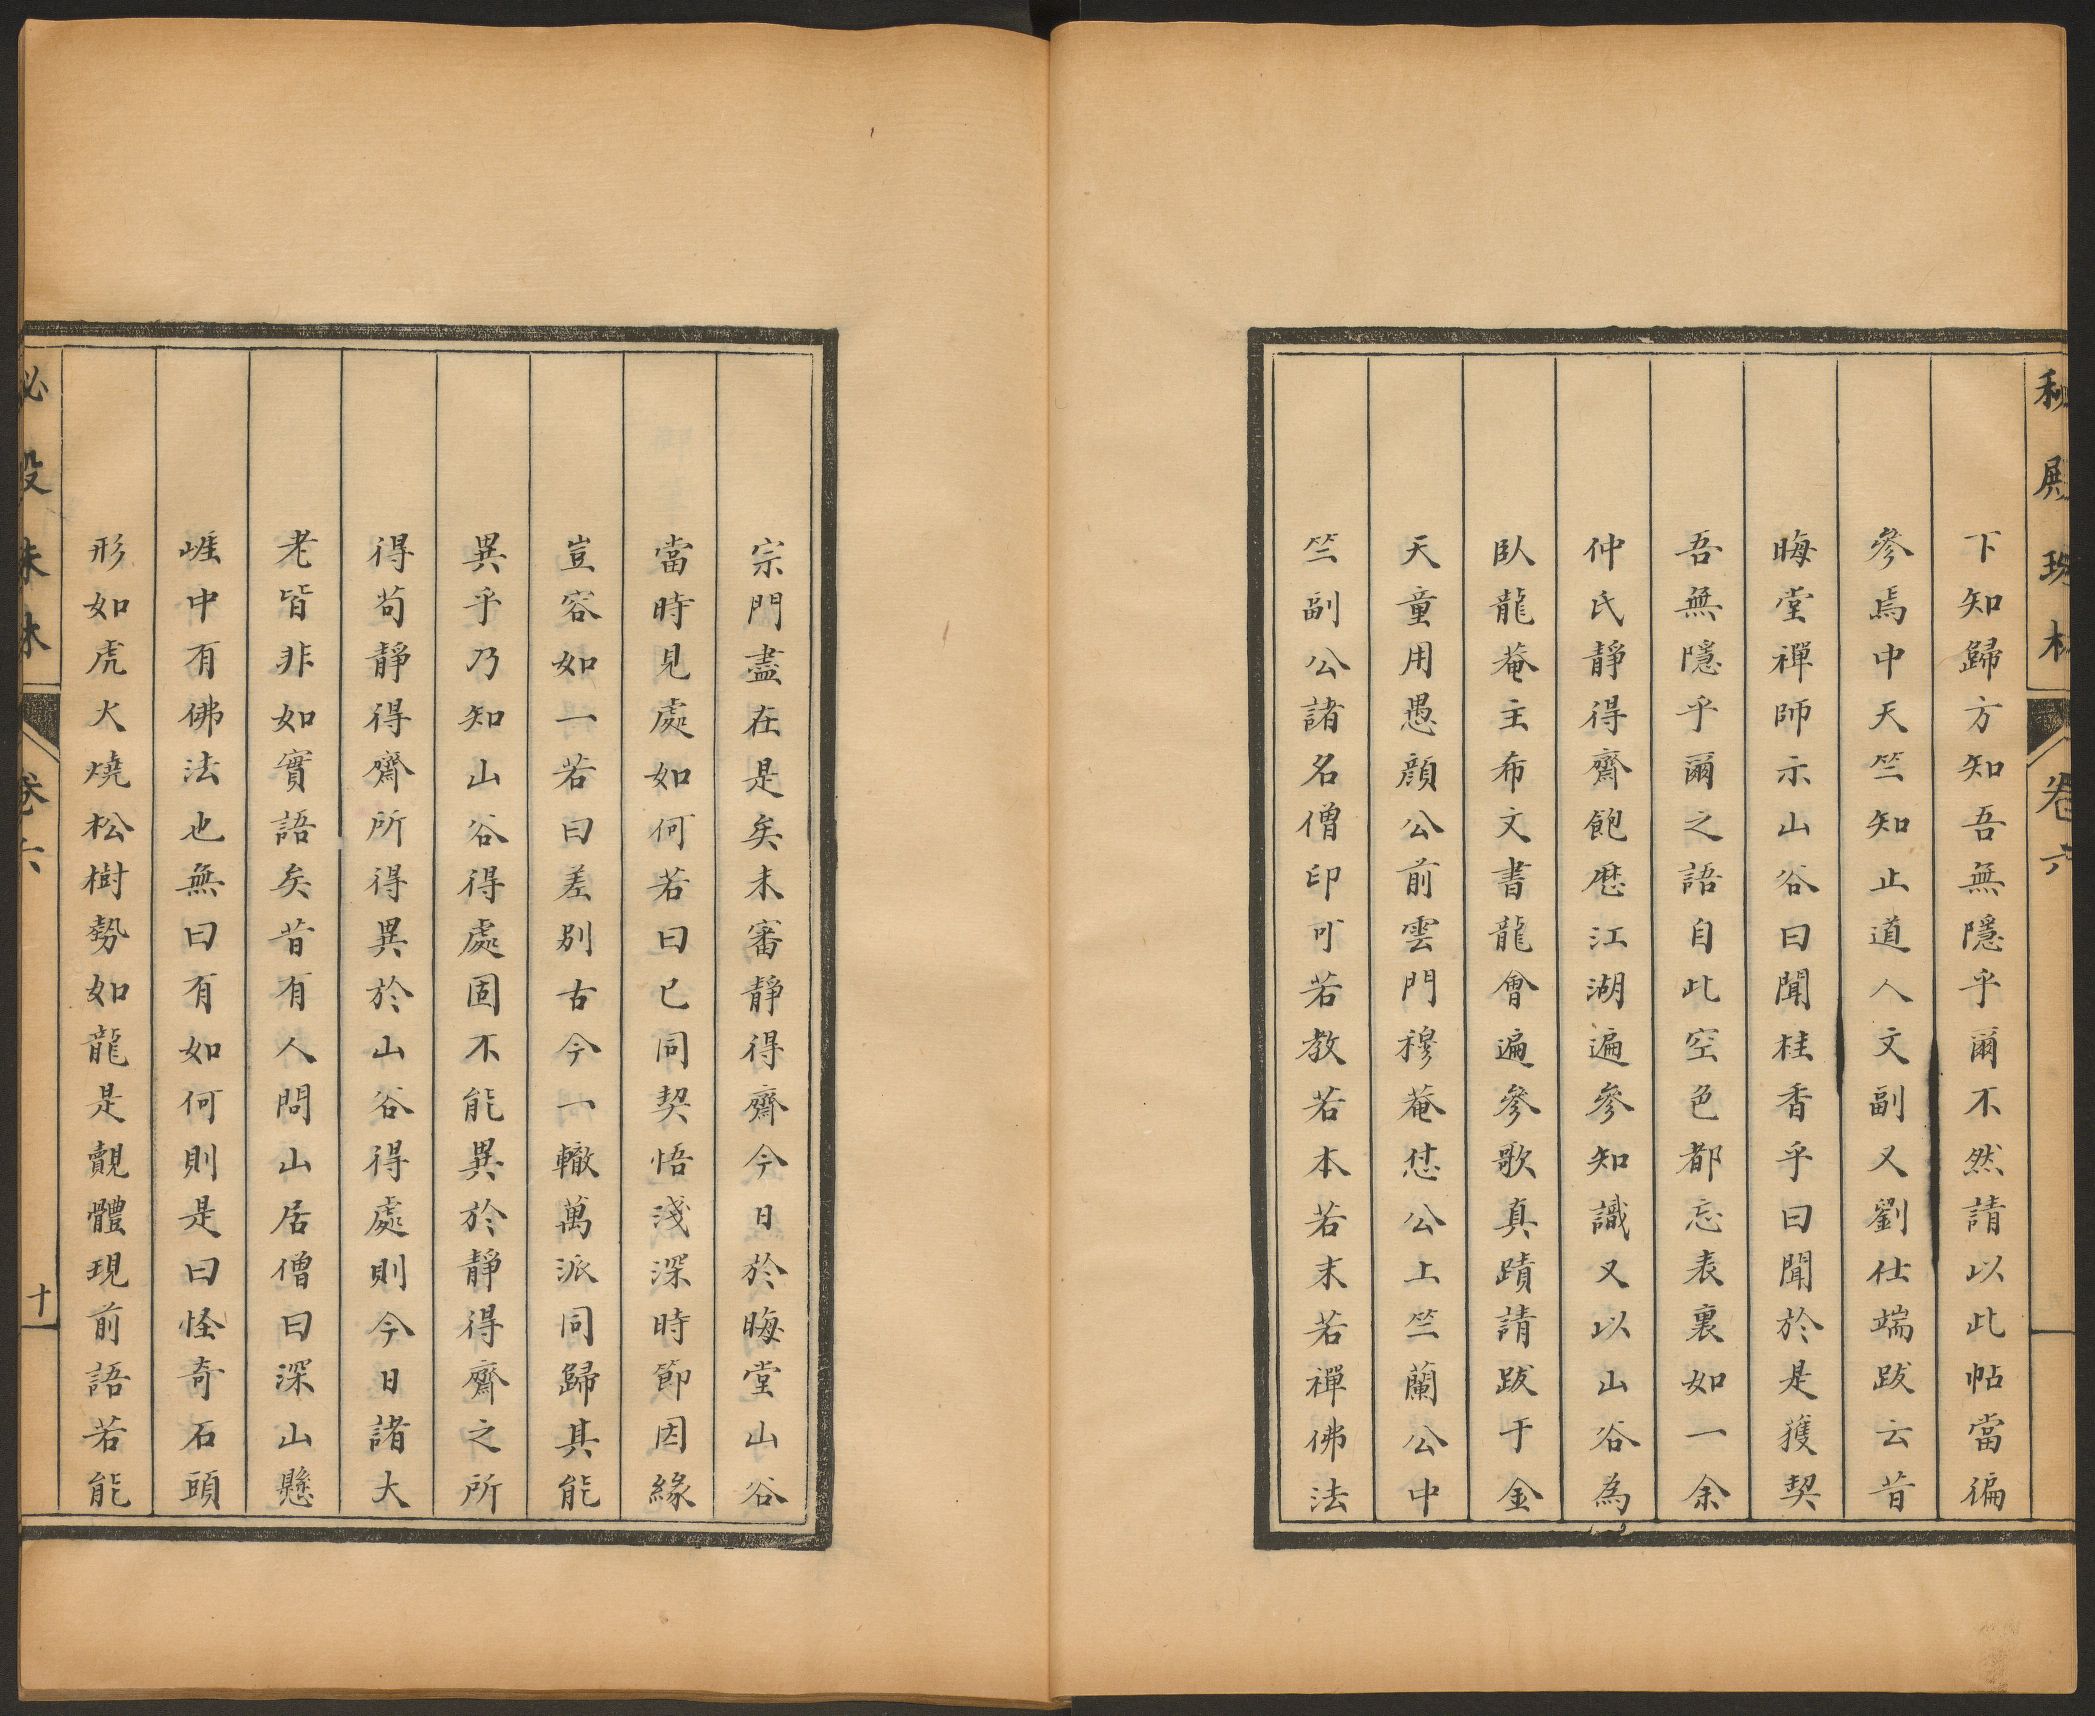 下知歸方知吾無隱乎爾不然請以此帖當徧
參焉中天竺知止道人文副又劉仕端跋云昔
晦堂禪師示山谷曰聞桂香乎曰聞於是獲契
吾無隱乎爾之語自此空色都忘表裏如一余
仲氏靜得齋飽歷江湖遍參知識又以山谷為
臥龍菴主布文書龍會遍參歌真蹟請跋于金
天童用愚顏公前雲門穆菴怤公上竺蘭公中
竺副公諸名僧印可若教若本若末若禪佛法
宗門盡在是矣未審靜得齋今日於晦堂山谷
當時見處如何若曰已同契悟淺深時節因緣
豈容如一若曰差別古今一轍萬派同歸其能
異乎乃知山谷得處固不能異於靜得齋之所
得苟靜得齋所得異於山谷得處則今日諸大
老皆非如實語矣昔有人問山居僧曰深山懸
崖中有佛法也無曰有如何則是曰怪奇石頭
形如虎火燒松樹勢如龍是覿體現前語若能
卷六
十